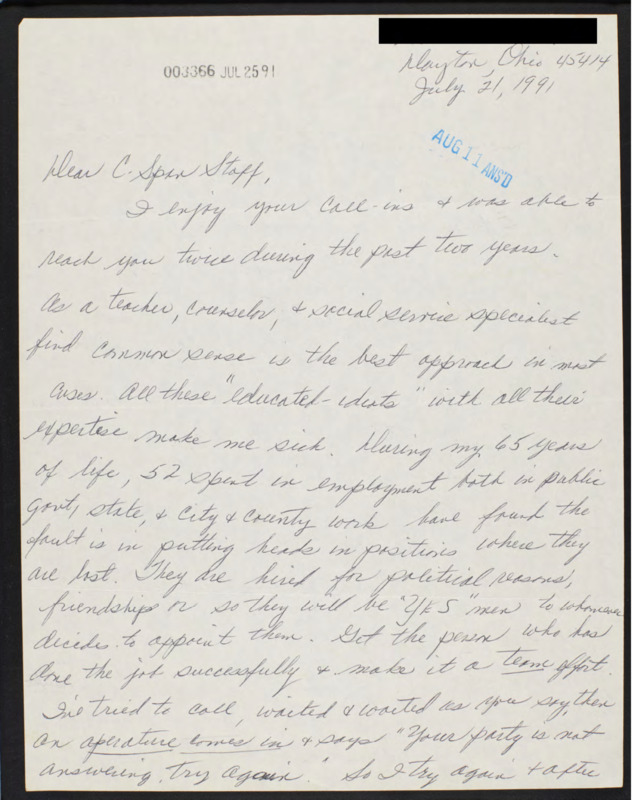 003366 JUL 25 91
Dayton, Ohio 45414
July 21, 1991
AUG 11 ANS'D
Dear C-Span Staff,
I enjoy your call-ins & was able to
reach you twice during the past two years.
As a teacher, counselor, & social service specialist
find common sense is the best approach in most
cases. All these "educated-idiots" with all their
expertise make me sick. During my 65 years
of life, 52 spent in employment both in public
Govt, state, & city & county work have found the
fault is in putting heads in positions where they
are lost. They are hired for political reasons,
friendships or so they will be "YES" men to whomever
decides to appoint them. Get the person who has
done the job successfully & make it a team effort.
I've tried to call, waited & waited as you say, then
an operature comes in & says "Your party is not
answering, try again." So I try again & after